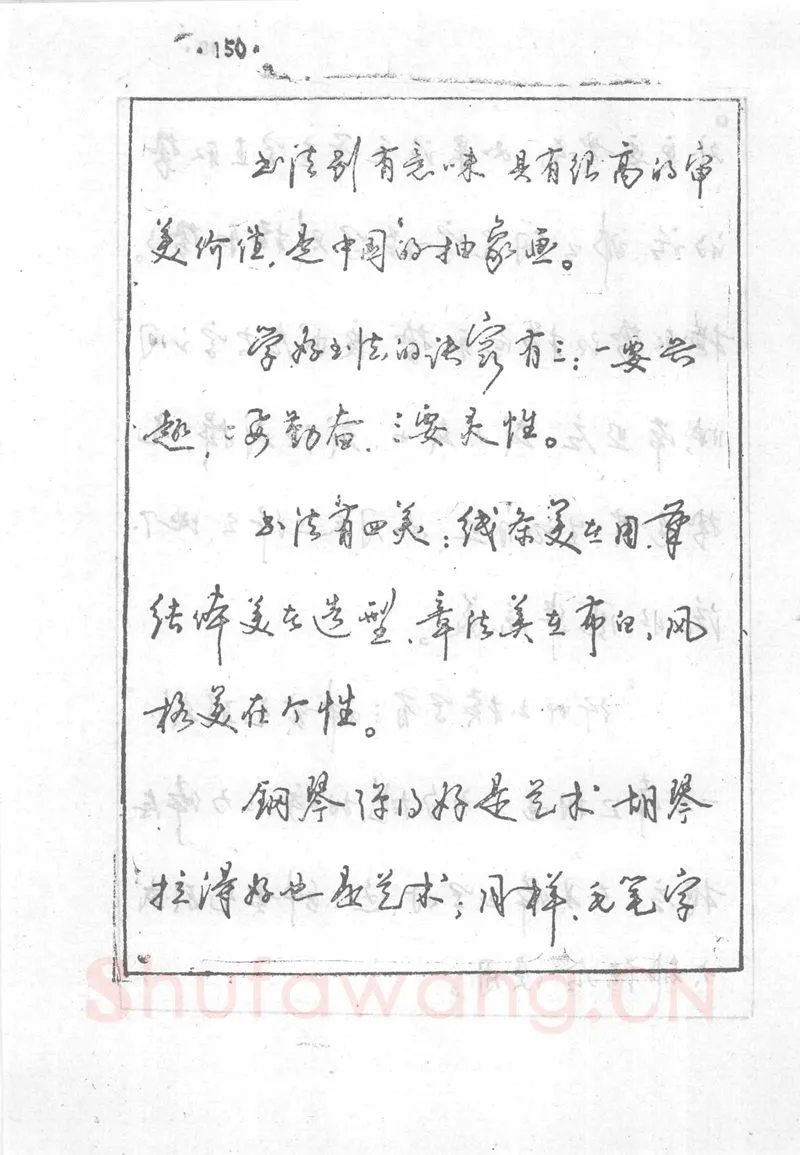 ·150·
书法别有意味 具有很高的审
美价值,是中国的抽象画。
学好书法的诀窍有三:一要兴
趣,二要勤奋,三要灵性。
书法有四美:线条美在用笔
结体美在造型、章法美在布白,风
格美在个性。
钢琴弹得好是艺术 胡琴
拉得好也是艺术;同样、毛笔字
Shufawang.CN